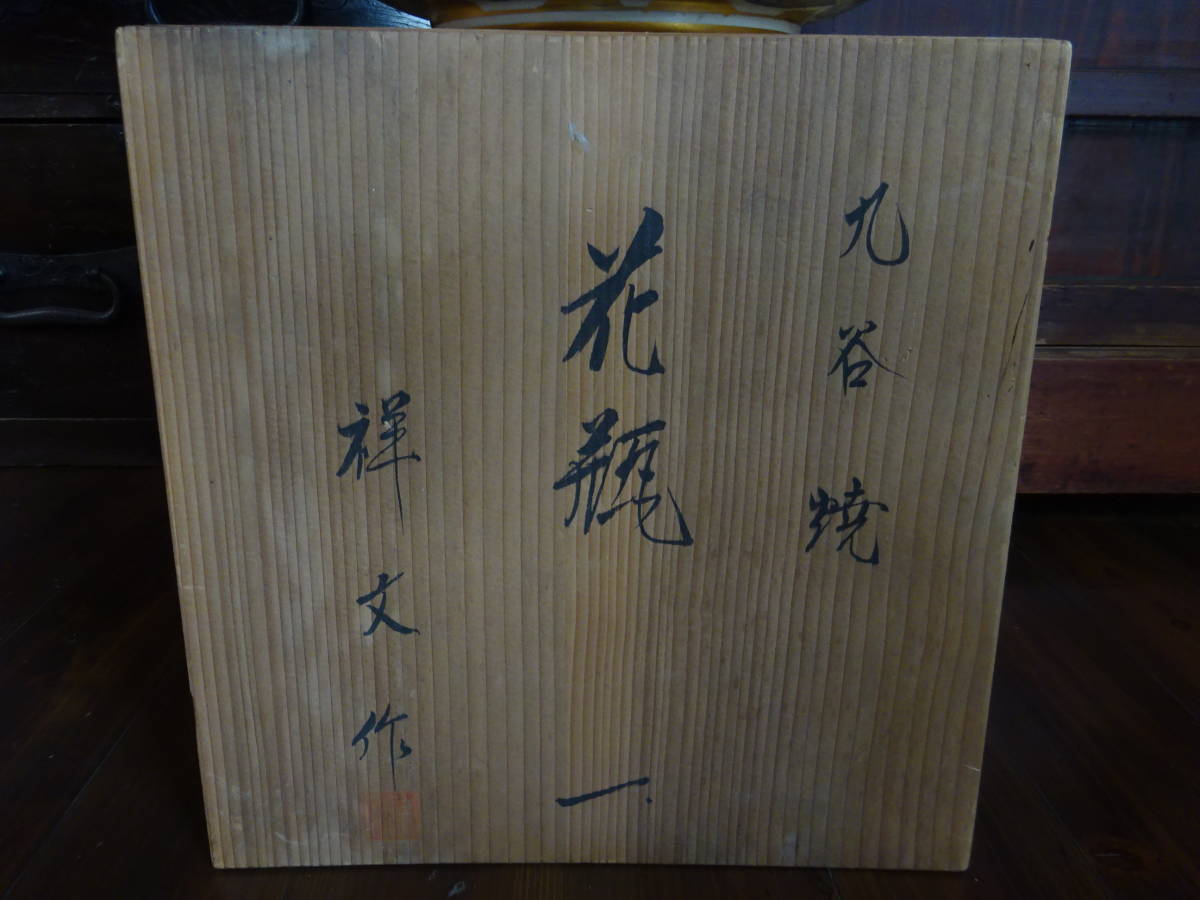 九谷焼
花瓶 一
祥文作